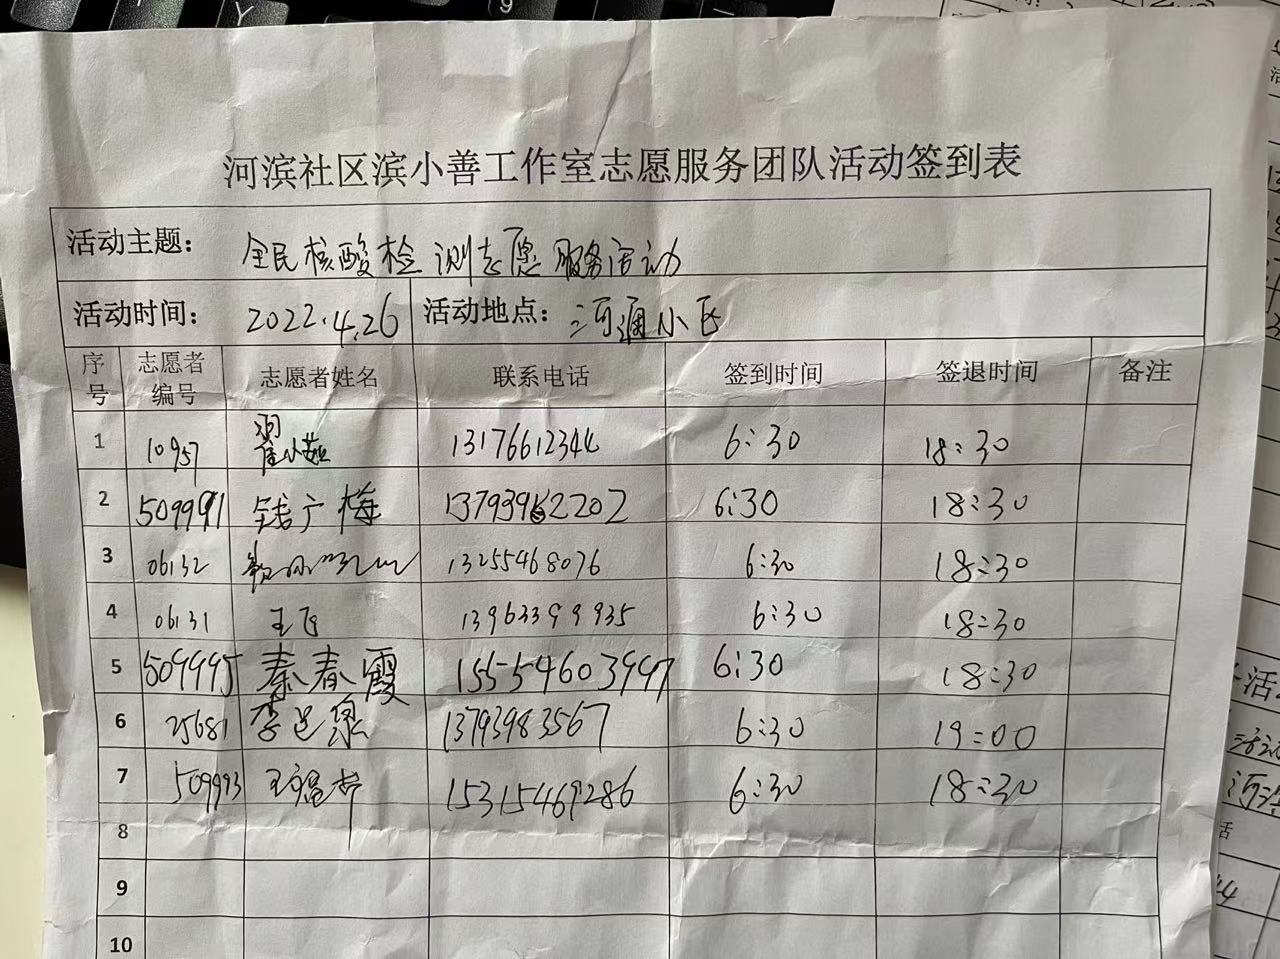 河滨社区滨小善工作室志愿服务团队活动签到表
活动主题： 全民核酸检测志愿服务活动
活动时间： 2022.4.26 活动地点： 河通小区
序号 志愿者编号 志愿者姓名 联系电话 签到时间 签退时间 备注
1 10957 13176612344 6:30 18:30
2 509991 钱广梅 6:30 18:30
3 06132 13255468076 6:30 18:30
4 06131 王飞 13963399935 6:30 18:30
5 509995 秦春霞 15554603997 6:30 18:30
6 25681 13793983567 6:30 19:00
7 509993 15315469286 6:30 18:30
8
9
10